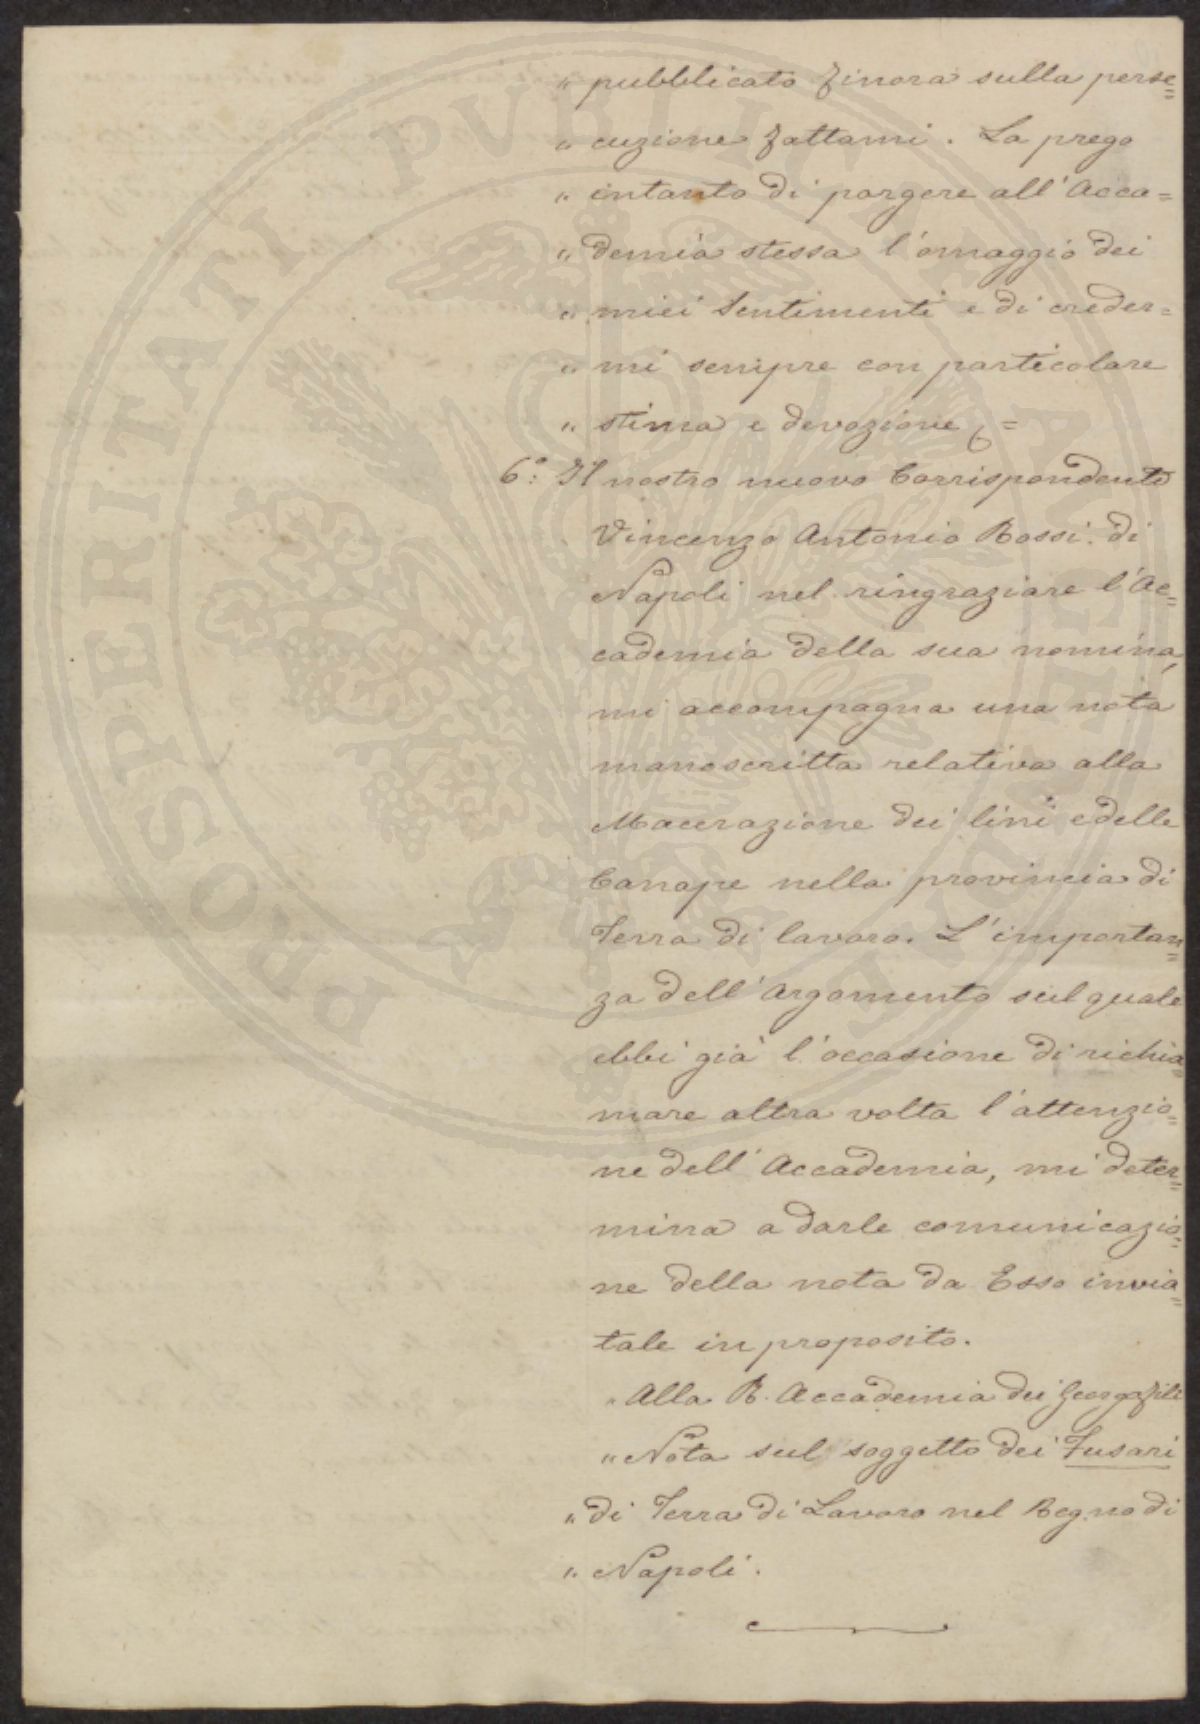 „ pubblicato finora sulla perse=
„ cuzione fattami. La prego
„ intanto di porgere all'Acca=
„ demia stessa l'omaggio dei
„ miei sentimenti e di creder=
„ mi sempre con particolare
„ stima e devozione =
6°: Il nostro nuovo Corrispondente
Vincenzo Antonio Rossi di
Napoli nel ringraziare l'Ac=
cademia della sua nomina,
mi accompagna una nota
manoscritta relativa alla
Macerazione dei lini e delle
Canape nella provincia di
Terra di lavoro. L'importan=
za dell'Argomento sul quale
ebbi già l'occasione di richia=
mare altra volta l'attenzio=
ne dell'Accademia, mi deter=
mina a darle comunicazio=
ne della nota da Esso invia=
tale in proposito.
„ Alla R. Accademia dei Georgofili
„ Nota sul soggetto dei Fusari
„ di Terra di Lavoro nel Regno di
„ Napoli.
PROSPERITATI PUBLICAE AUGENDAE